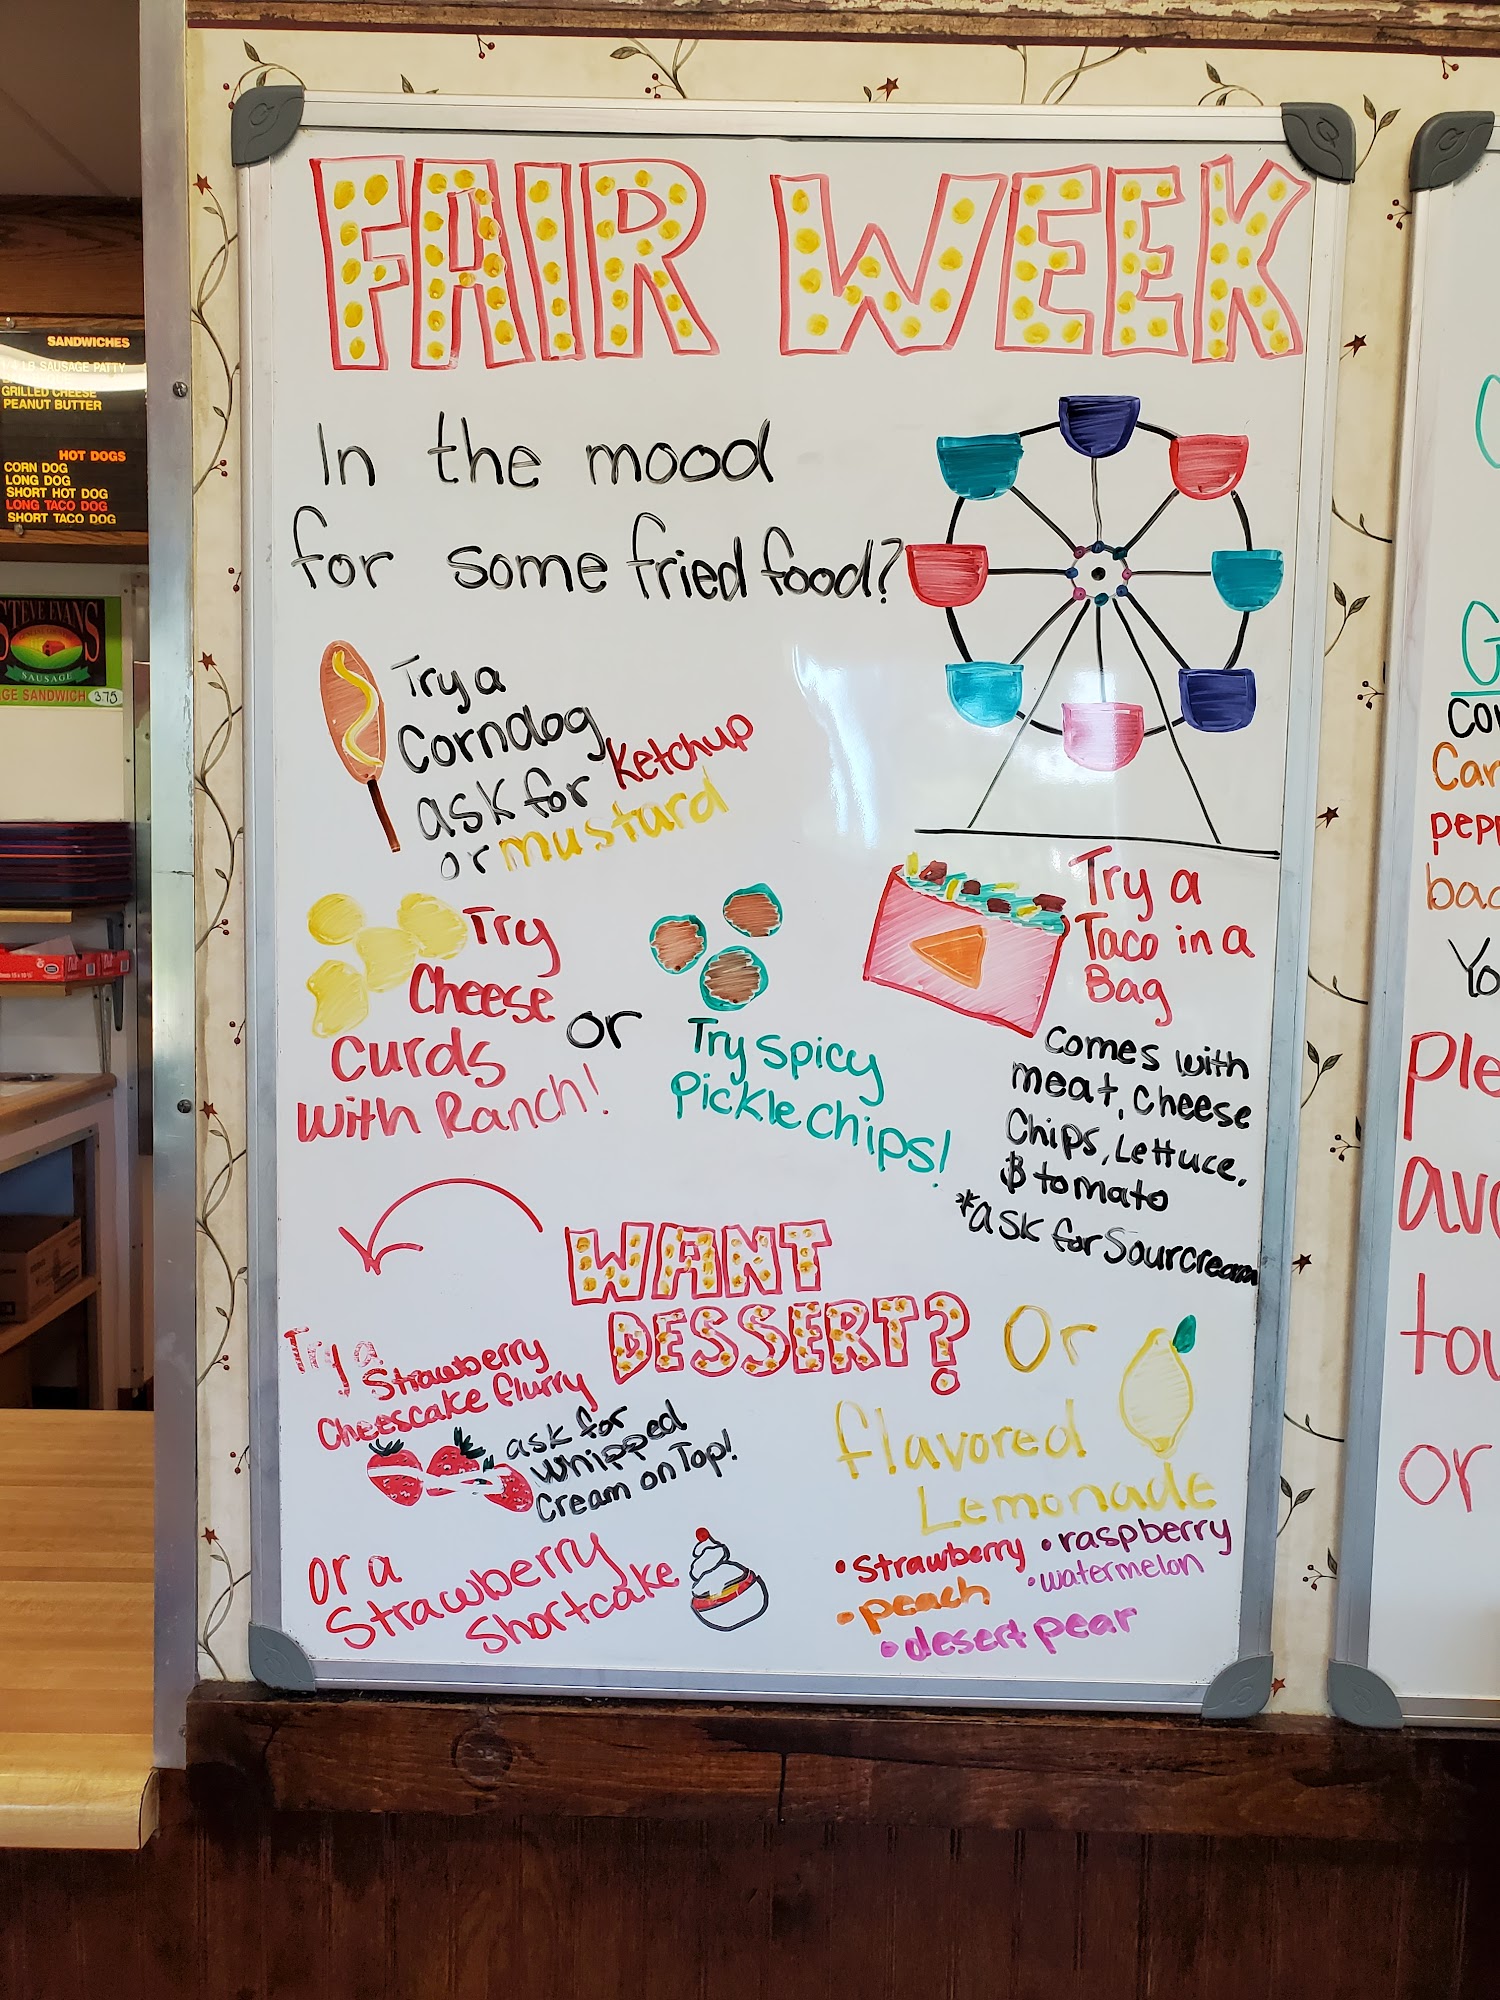 FAIR WEEK
In the mood
for some fried food?
Try a
Corndog
ask for Ketchup
or mustard
Try
Cheese
Curds
with Ranch!
or
Try spicy
Pickle chips!
Try a
Taco in a
Bag
Comes with
meat, cheese
Chips, Lettuce,
& tomato
*ask for Sourcream
WANT
DESSERT?
Try a
Strawberry
Cheescake flurry
ask for
whipped
Cream on Top!
or a
Strawberry
Shortcake
Or
flavored
Lemonade
•Strawberry •raspberry
•peach •watermelon
•desert pear
SANDWICHES
1/4 LB SAUSAGE PATTY
GRILLED CHEESE
PEANUT BUTTER
HOT DOGS
CORN DOG
LONG DOG
SHORT HOT DOG
LONG TACO DOG
SHORT TACO DOG
STEVE EVANS
SAUSAGE
GE SANDWICH 3.75
G
Car
pep
Yo
Ple
or